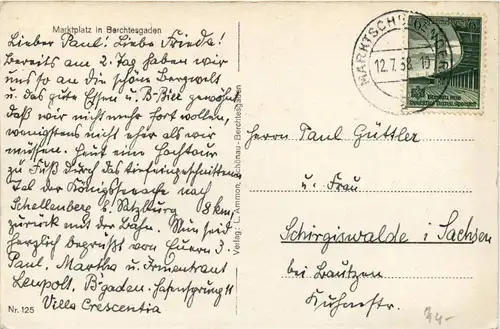 Marktplatz in Berchtesgaden
Lieber Paul! Liebe Frieda!
Bereits am 2. Tag haben wir
uns so an die schöne Bergwelt
u. das gute Essen u. B-Bier gewöhnt,
daß wir nicht mehr fort wollen,
wenigstens nicht eher als wir
müssen. Heut eine Hochtour
zu Fuß durch das tiefeingeschnittene
Tal der Königsseeache nach
Schellenberg b. Salzburg 18 km,
zurück mit der Bahn. Nun seid
herzlich begrüßt von Euern 3.
Paul, Martha u.
Leupolt, B'gaden.
Villa Crescentia
Nr. 125
Verlag: L. Ammon, Schönau-Berchtesgaden
MARKTSCH
12.7.38
Herrn Paul Güttler
u. Frau
Schirgiswalde i Sachsen
bei Bautzen
Kuhnestr.